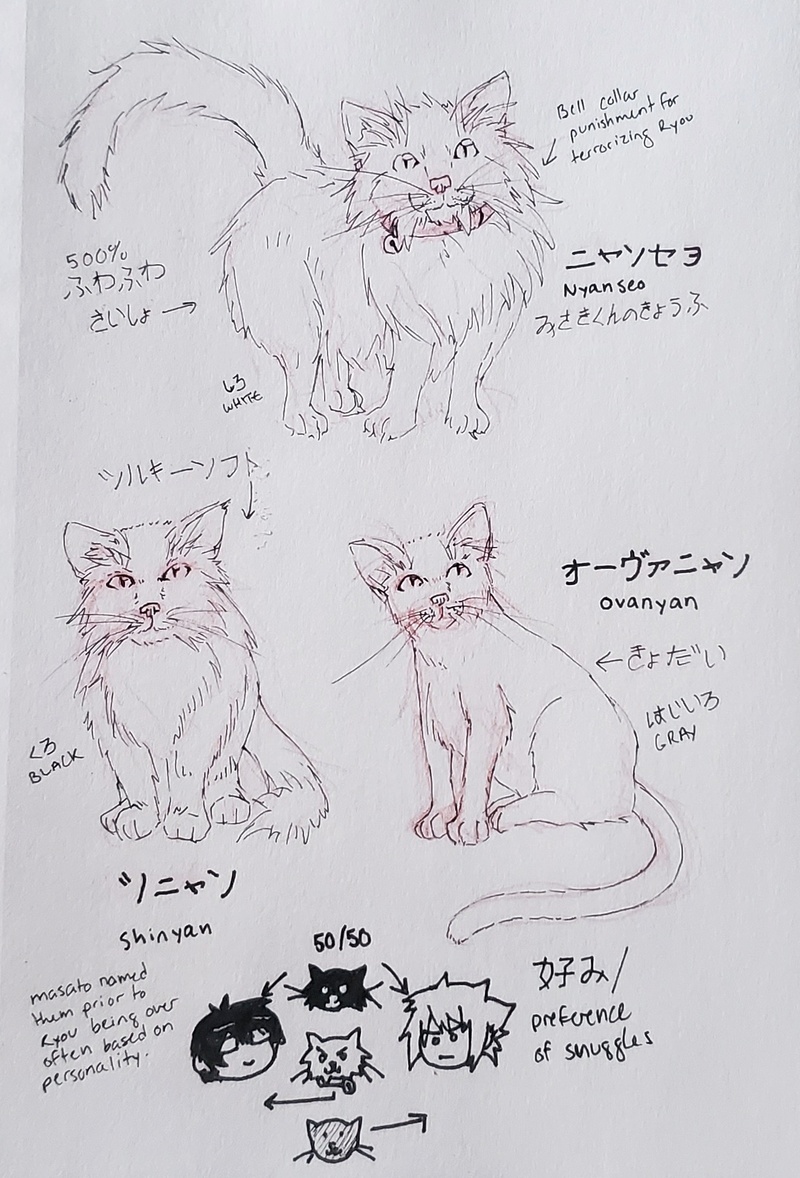 Bell collar
punishment for
terrorizing Ryou
500%
ふわふわ
さいしょ
ニャンセヨ
Nyanseo
みさきくんのきょうふ
しろ
WHITE
シルキーソフト
オーヴァニャン
ovanyan
きょだい
はじいろ
GRAY
くろ
BLACK
シニャン
shinyan
50/50
masato named
them prior to
Ryou being over
often based on
personality.
好み/
preference
of snuggles